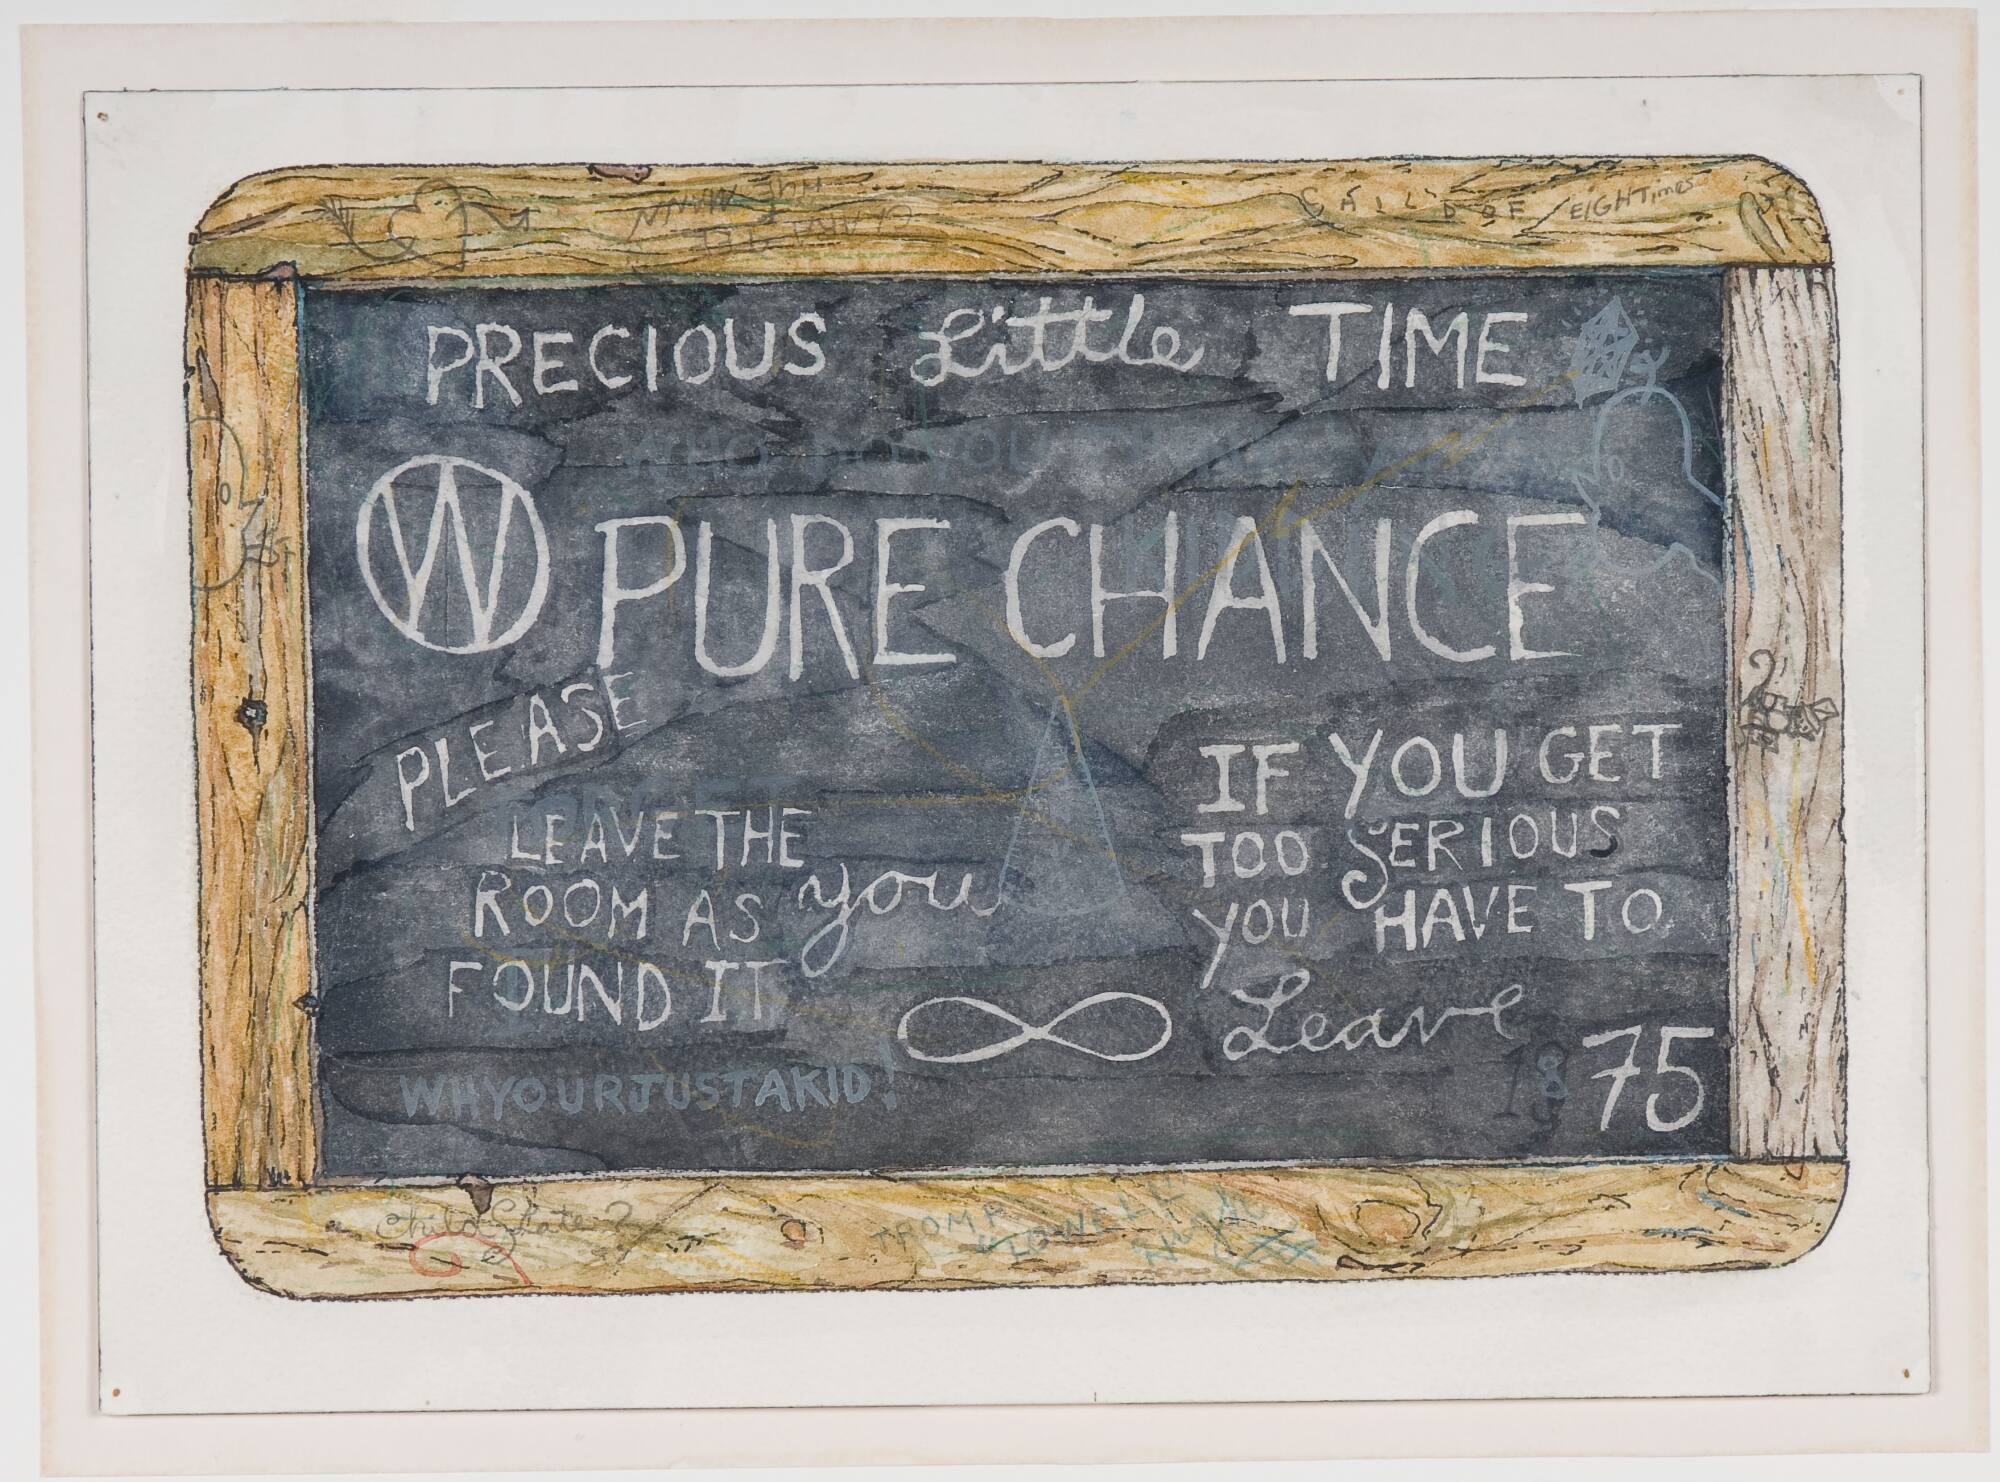 EIGHTimes
PRECIOUS Little TIME
W PURE CHANCE
PLEASE
LEAVE THE
ROOM AS you
FOUND IT
IF YOU GET
TOO SERIOUS
YOU HAVE TO
Leave
WHYOURJUSTAKID!
1875
a Child Slate?